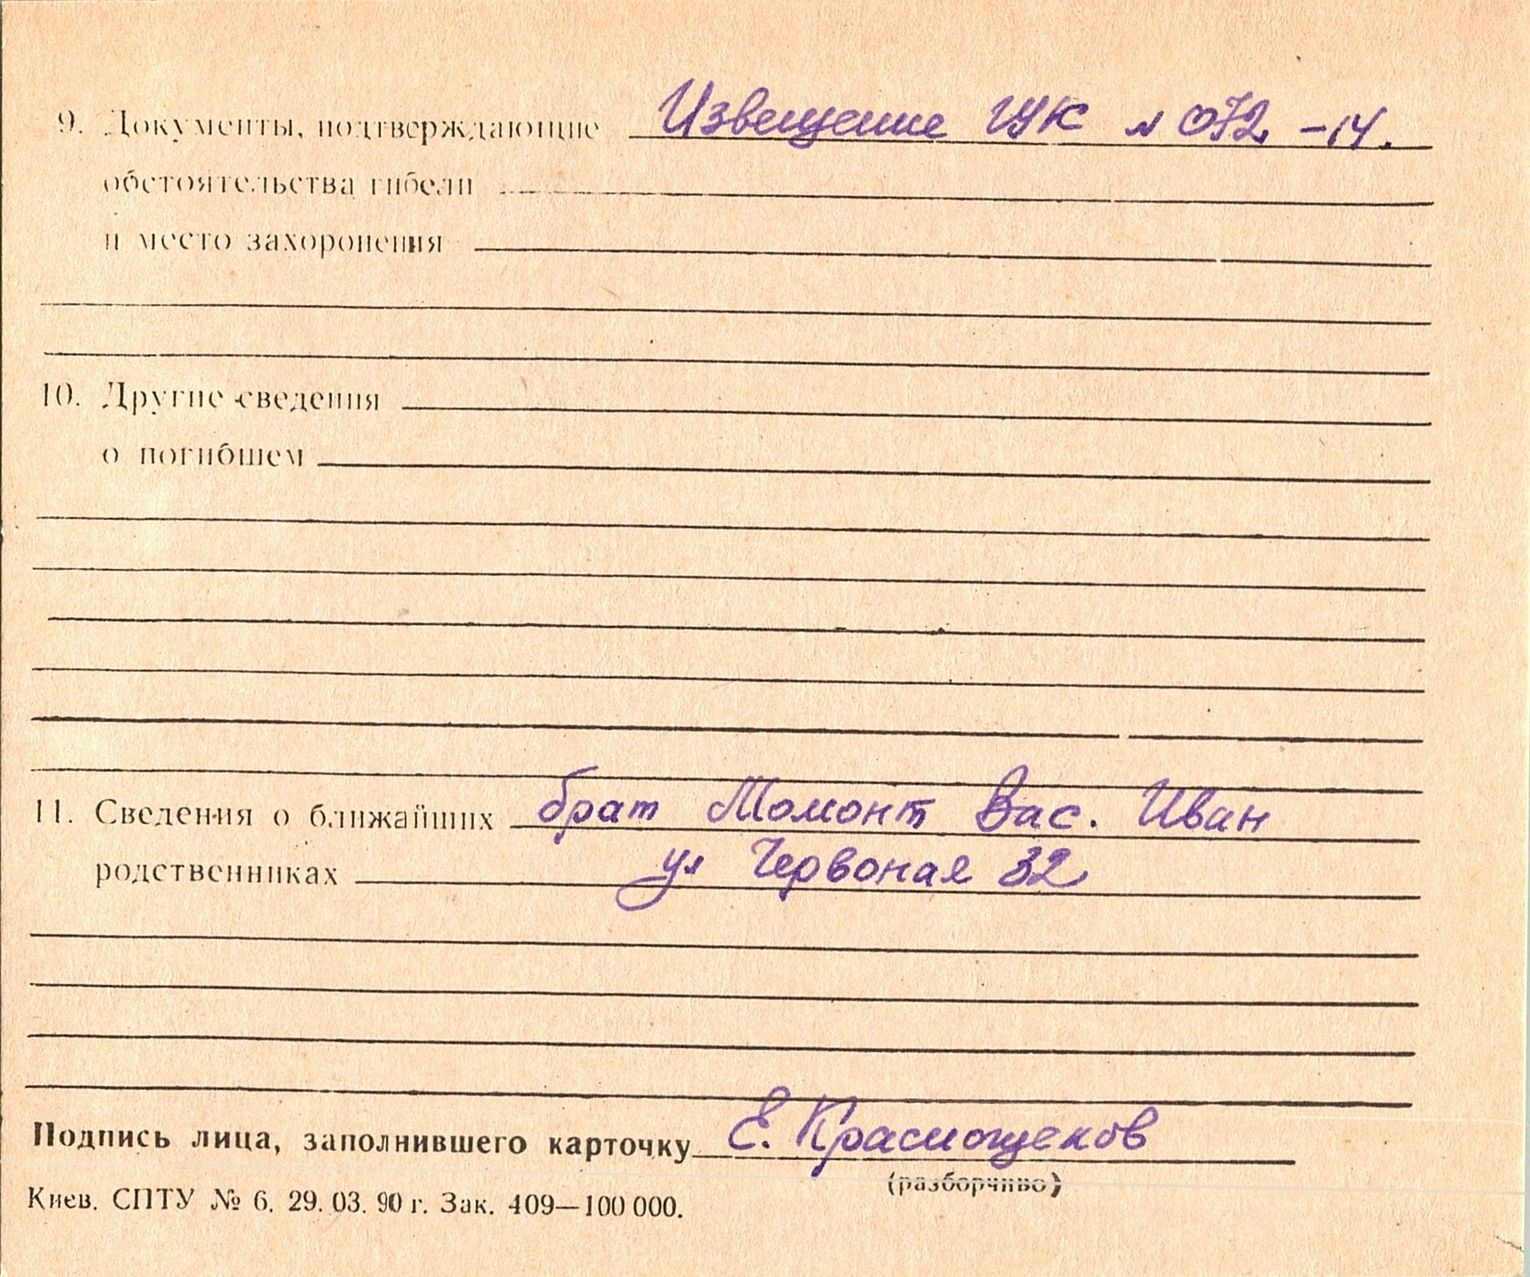 9. Документы, подтверждающие Извещение ЦУК № 072 -14.
обстоятельства гибели
и место захоронения
10. Другие сведения
о погибшем
11. Сведения о ближайших брат Момонт Вас. Иван
родственниках ул Червоная 32
Подпись лица, заполнившего карточку Е. Краснощеков
(разборчиво)
Киев. СПТУ № 6. 29. 03. 90 г. Зак. 409—100 000.